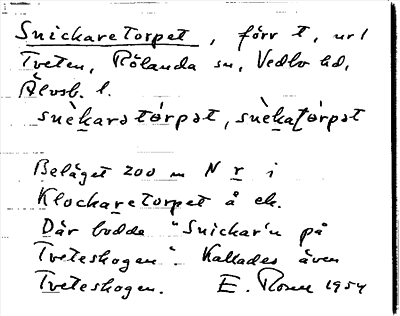 Snickaretorpet, förr t, url
Tveten, Rölanda sn, Vedbo hd,
Älvsb. l.
snèkarətórpət, snèkatórpət
Beläget 200 m N r i
Klockaretorpet å ek.
Där bodde "Snickar'n på
Tveteskogen". Kallades även
Tveteskogen. E. Rosell 1954